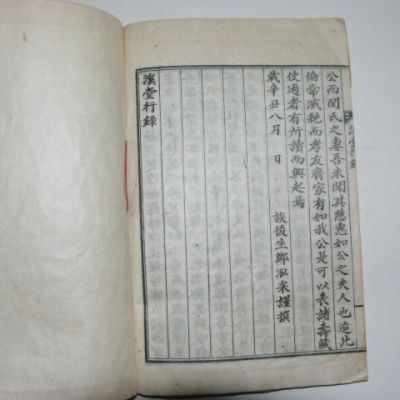 公而閔氏之妻吾未聞其慈惠如公之夫人也迨此
倫常滅絶而孝友齊家有如我公是可以表諸壽藏
使過者有所讀而興起焉
歲辛丑八月 日 族後生鄭泓采謹撰
溪堂行錄